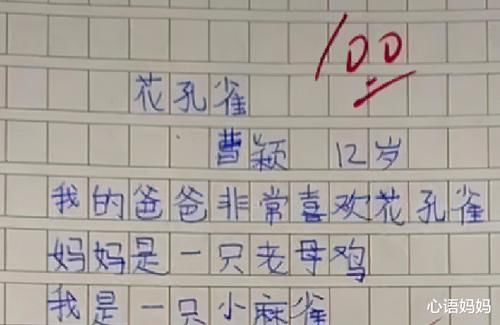 100
花孔雀
曹颖 12岁
我的爸爸非常喜欢花孔雀
妈妈是一只老母鸡
我是一只小麻雀
心语妈妈